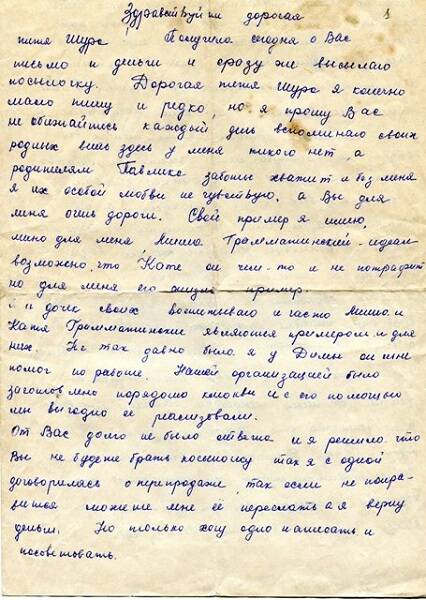 Здравствуйти дорогая 1
тетя Шура! Получила сегодня о Вас
письмо и деньги и сразу же высылаю
посылочку. Дорогая тетя Шура я конечно
мало пишу и редко, но я прошу Вас
не обижайтись каждый день вспоминаю своих
родных ведь здесь у меня никого нет, а
родителям Павлика заботы хватит и без меня
я их особой любви не чувствую, а Вы для
меня очень дороги. Свой пример я ищю,
мино для меня, Миша Грамматинский - идеал
возможно, что Кате он чем-то и не потрафит
но для меня его жизнь пример.
и дочек своих воспитываю и часто Миша и
Катя Грамматинские являются примером и для
них. Не так давно была я у Димы он мне
помог по работе. Нашей организацией было
заготовлено порядочно клюквы и с его помощью
мы выгодно её реализовали.
От Вас долго не было ответа и я решила что
Вы не будете брать посылочку так я с одной
договорилась о перепродаже, так если не понра-
виться можете мне её переслать а я верну
деньги. Но только хочу одно написать и
посоветывать.